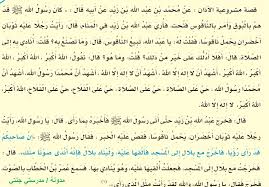 قصة مشروعية الأذان : عَنْ مُحَمَّدِ بْنِ عَبْدِ اللهِ بْنِ زَيْدٍ عَنْ أَبِيهِ قَالَ : كَانَ رَسُولُ اللهِ ﷺ قَدْ
هَمَّ بِالْبُوقِ وَأَمَرَ بِالنَّاقُوسِ فَنُحِتَ، فَأُرِيَ عَبْدُ اللهِ بْنُ زَيْدٍ فِي الْمَنَامِ، قَالَ: رَأَيْتُ رَجُلًا عَلَيْهِ ثَوْبَانِ
أَخْضَرَانِ يَحْمِلُ نَاقُوسًا، فَقُلْتُ لَهُ: يَا عَبْدَ اللهِ، تَبِيعُ النَّاقُوسَ، قَالَ: وَمَا تَصْنَعُ بِهِ؟ قُلْتُ: أُنَادِي بِهِ إِلَى
الصَّلَاةِ، قَالَ: أَفَلَا أَدُلُّكَ عَلَى خَيْرٍ مِنْ ذَلِكَ، قُلْتُ: وَمَا هُوَ؟ قَالَ: تَقُولُ: اللهُ أَكْبَرُ، اللهُ أَكْبَرُ، اللهُ
أَكْبَرُ، اللهُ أَكْبَرُ، أَشْهَدُ أَنْ لَا إِلَهَ إِلَّا اللهُ، أَشْهَدُ أَنْ لَا إِلَهَ إِلَّا اللهُ،
الصَّلَاةِ، حَيَّ عَلَى الْفَلَاحِ، حَيَّ عَلَى الْفَلَاحِ، اللهُ أَكْبَرُ، اللهُ أَكْبَرُ، لَا إِلَهَ إِلَّا اللهُ
قَالَ: فَخَرَجَ عَبْدُ اللهِ بْنُ زَيْدٍ حَتَّى أَتَى رَسُولَ اللهِ ﷺ فَأَخْبَرَهُ بِمَا رَأَى. قَالَ: يَا رَسُولَ اللهِ، رَأَيْتُ
رَجُلًا عَلَيْهِ ثَوْبَانِ أَخْضَرَانِ، يَحْمِلُ نَاقُوسًا، فَقَصَّ عَلَيْهِ الْخَبَرَ، فَقَالَ رَسُولُ اللهِ ﷺ: «إِنَّ صَاحِبَكُمْ
قَدْ رَأَى رُؤْيَا، فَاخْرُجْ مَعَ بِلَالٍ إِلَى الْمَسْجِدِ فَأَلْقِهَا عَلَيْهِ، وَلْيُنَادِ بِلَالٌ فَإِنَّهُ أَنْدَى صَوْتًا مِنْكَ»، قَالَ:
فَخَرَجْتُ مَعَ بِلَالٍ إِلَى الْمَسْجِدِ، فَجَعَلْتُ أُلْقِيهَا عَلَيْهِ وَهُوَ يُنَادِي بِهَا، فَسَمِعَ عُمَرُ بْنُ الْخَطَّابِ بِالصَّوْتِ
فَخَرَجَ، فَقَالَ: يَا رَسُولَ اللهِ، وَاللهِ لَقَدْ رَأَيْتُ مِثْلَ الَّذِي رَأَى
مدونة / مدرستي جنتي